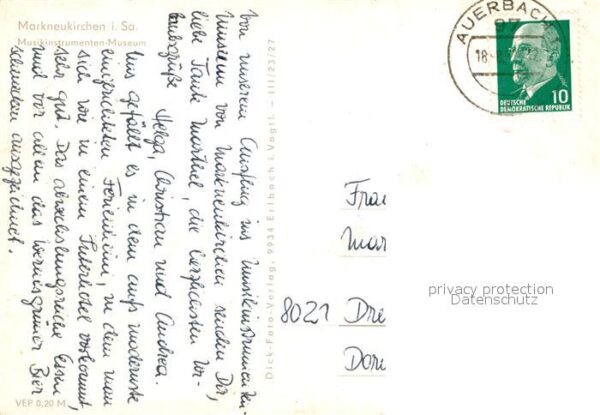 Markneukirchen i. Sa.
Musikinstrumenten-Museum
Von unserem Ausflug ins Musikinstrumenten-
museum von Markneukirchen senden Dir,
liebe Tante Marthel, die herzlichsten Ur-
laubsgrüße
Helga, Christian und Andrea.
Uns gefällt es in dem aufs modernste
eingerichteten Ferienheim, in dem man
sich wie in einem Interhotel vorkommt,
sehr gut. Das abwechslungsreiche Essen
und vor allem das Wernesgrüner Bier
schmecken ausgezeichnet.
VEP 0,20 M
Dick-Foto-Verlag, 9934 Erlbach i. Vogtl. — III/23/27
AUERBACH
97
18
10
DEUTSCHE
DEMOKRATISCHE REPUBLIK
Frau
Mar
8021 Dre
Dor
privacy protection
Datenschutz